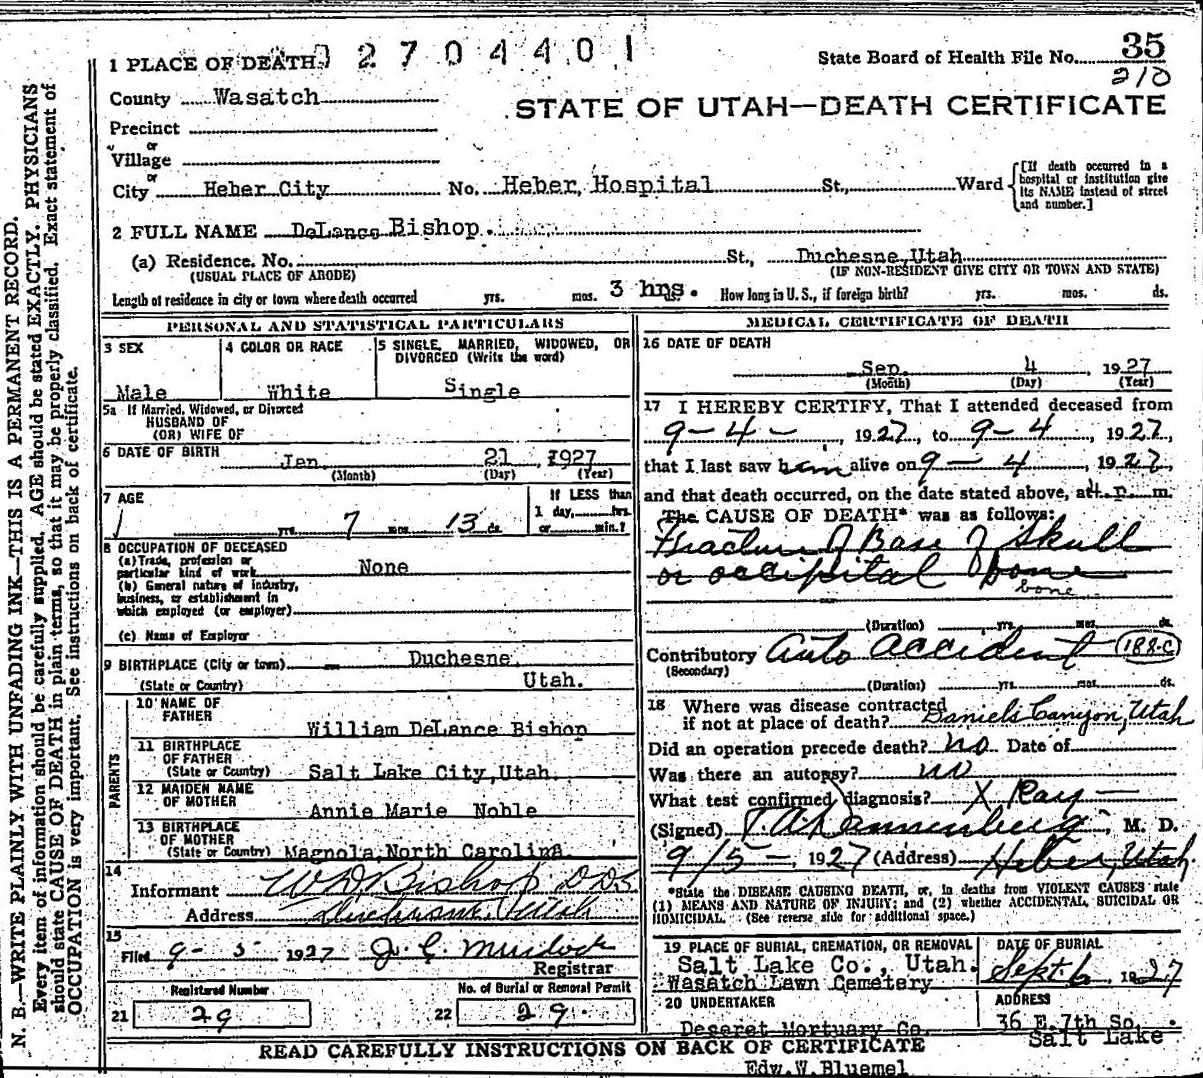 N. B.—WRITE PLAINLY WITH UNFADING INK—THIS IS A PERMANENT RECORD.
Every item of information should be carefully supplied. AGE should be stated EXACTLY. PHYSICIANS
should state CAUSE OF DEATH in plain terms, so that it may be properly classified. Exact statement of
OCCUPATION is very important. See instructions on back of certificate.
1 PLACE OF DEATH 2 7 0 4 4 0 1
State Board of Health File No. 35
210
County Wasatch
STATE OF UTAH—DEATH CERTIFICATE
Precinct
or
Village
or
City Heber City No. Heber, Hospital St., Ward
[If death occurred in a hospital or institution give its NAME instead of street and number.]
2 FULL NAME DeLance Bishop.
(a) Residence. No. St., Duchesne, Utah
(USUAL PLACE OF ABODE) (IF NON-RESIDENT GIVE CITY OR TOWN AND STATE)
Length of residence in city or town where death occurred yrs. mos. 3 hrs. ds. How long in U. S., if foreign birth? yrs. mos. ds.
PERSONAL AND STATISTICAL PARTICULARS
3 SEX
Male
4 COLOR OR RACE
White
5 SINGLE, MARRIED, WIDOWED, OR
DIVORCED (Write the word)
Single
5a If Married, Widowed, or Divorced
HUSBAND OF
(OR) WIFE OF
6 DATE OF BIRTH Jan 21, 1927
(Month) (Day) (Year)
7 AGE
yrs. 7 mos. 13 ds.
If LESS than
1 day, hrs.
or min.?
8 OCCUPATION OF DECEASED
(a) Trade, profession or
particular kind of work None
(b) General nature of industry,
business, or establishment in
which employed (or employer)
(c) Name of Employer
9 BIRTHPLACE (City or town) Duchesne,
(State or Country) Utah.
PARENTS
10 NAME OF
FATHER
William DeLance Bishop
11 BIRTHPLACE
OF FATHER
(State or Country) Salt Lake City, Utah.
12 MAIDEN NAME
OF MOTHER Annie Marie Noble
13 BIRTHPLACE
OF MOTHER
(State or Country) Magnola, North Carolina.
14
Informant W D Bishop DDS
Address Duchesne, Utah
15
Filed 9- 5- 1927 J. C. Murdock
Registrar
Registered Number
21 29
No. of Burial or Removal Permit
22 29.
MEDICAL CERTIFICATE OF DEATH
16 DATE OF DEATH
Sep. 4 1927
(Month) (Day) (Year)
17 I HEREBY CERTIFY, That I attended deceased from
9-4-, 1927, to 9-4, 1927,
that I last saw him alive on 9-4, 1927,
and that death occurred, on the date stated above, at 4 p. m.
The CAUSE OF DEATH* was as follows:
Fracture of Base of Skull
or occipital bone
bone
(Duration) yrs. mos. ds.
Contributory Auto Accident (188-C)
(Secondary)
(Duration) yrs. mos. ds.
18 Where was disease contracted
if not at place of death? Daniels Canyon, Utah
Did an operation precede death? no Date of
Was there an autopsy? no
What test confirmed diagnosis? X Ray—
(Signed) T. A. Dannenberg, M. D.
9/5-, 1927 (Address) Heber, Utah
*State the DISEASE CAUSING DEATH, or, in deaths from VIOLENT CAUSES state
(1) MEANS AND NATURE OF INJURY; and (2) whether ACCIDENTAL, SUICIDAL OR
HOMICIDAL. (See reverse side for additional space.)
19 PLACE OF BURIAL, CREMATION, OR REMOVAL
Salt Lake Co., Utah.
Wasatch Lawn Cemetery
DATE OF BURIAL
Sept. 6 1927
20 UNDERTAKER
Deseret Mortuary Co.
ADDRESS
36 E. 7th So.
Salt Lake
READ CAREFULLY INSTRUCTIONS ON BACK OF CERTIFICATE
Edw. W. Bluemel